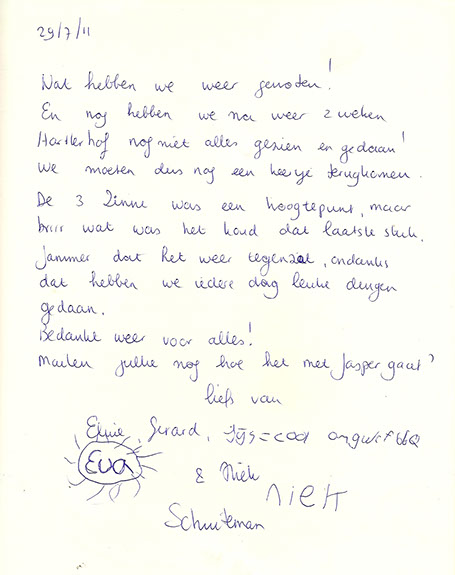 29/7/11
Wat hebben we weer genoten!
En nog hebben we na weer 2 weken
Hartlerhof nog niet alles gezien en gedaan!
We moeten dus nog een keertje terugkomen.
De 3 Zinne was een hoogtepunt, maar
brrr wat was het koud dat laatste stuk.
Jammer dat het weer tegenzat, ondanks
dat hebben we iedere dag leuke dingen
gedaan.
Bedankt weer voor alles!
Mailen jullie nog hoe het met Jasper gaat?
liefs van
Gerard, = cool
Eva & Niek
niek
Schuiteman